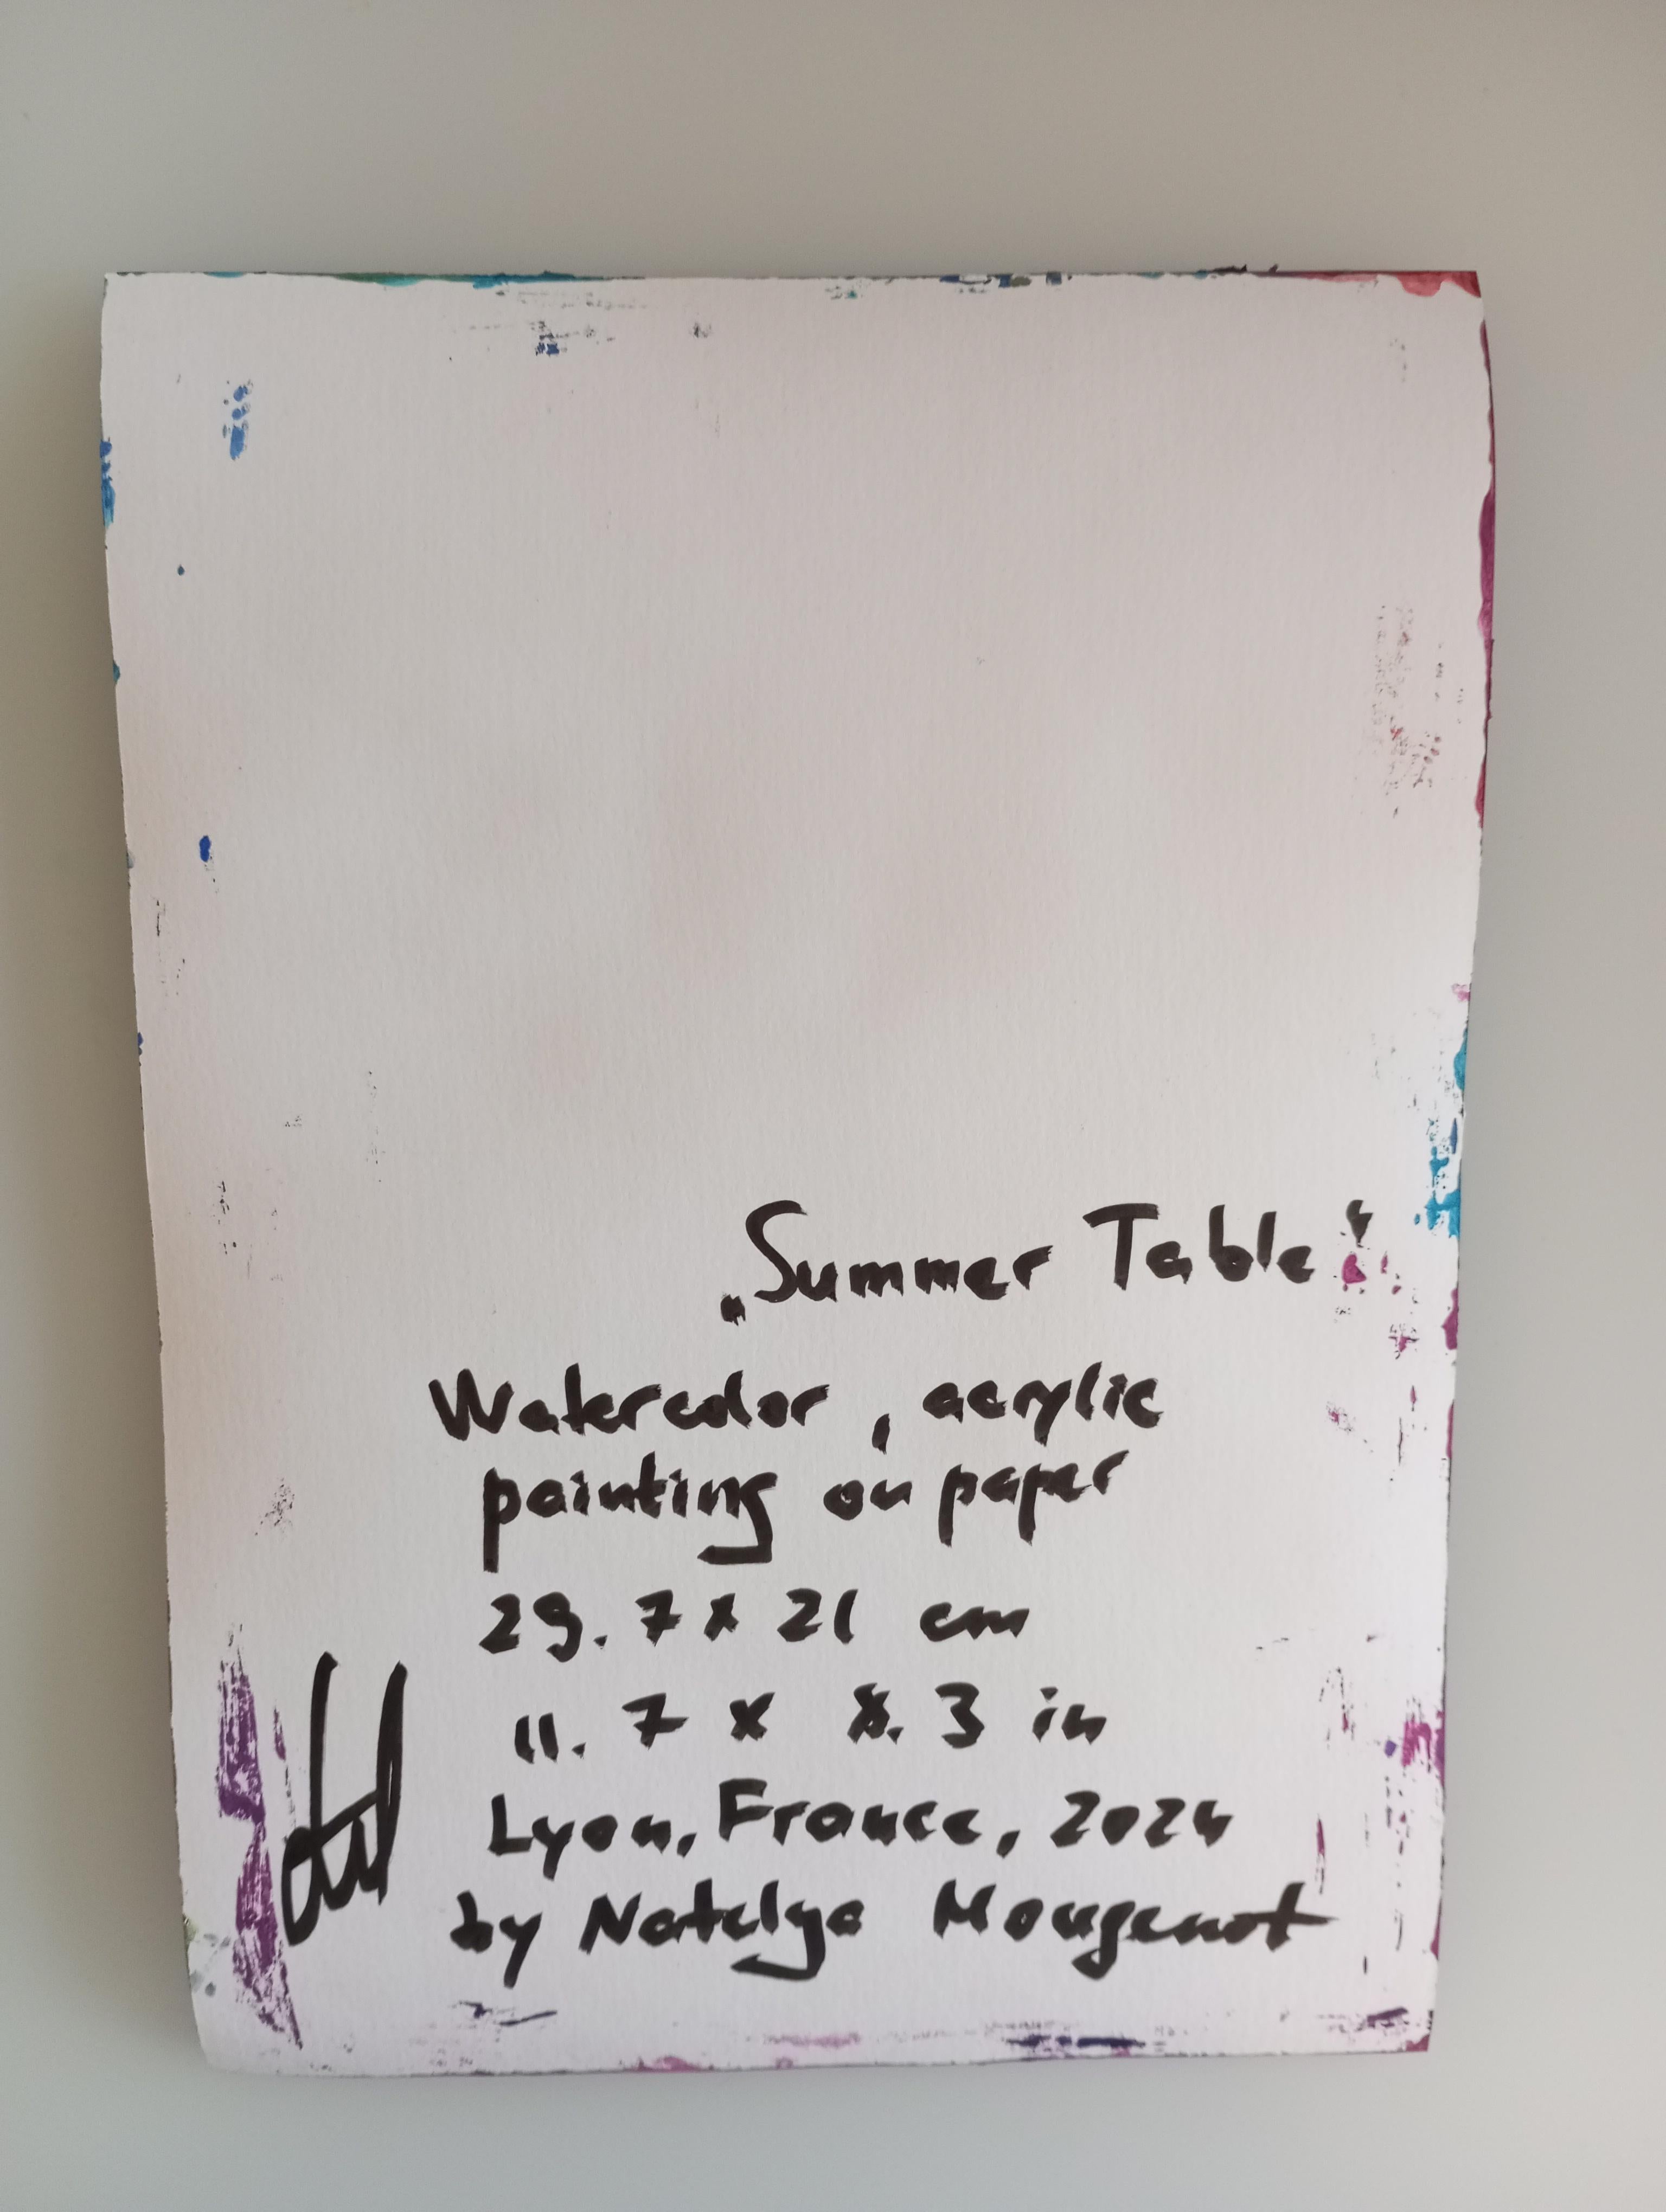 „Summer Table“
Watercolor, acrylic
painting on paper
29.7 x 21 cm
11.7 x 8.3 in
Lyon, France, 2024
by Natalya Mougenot